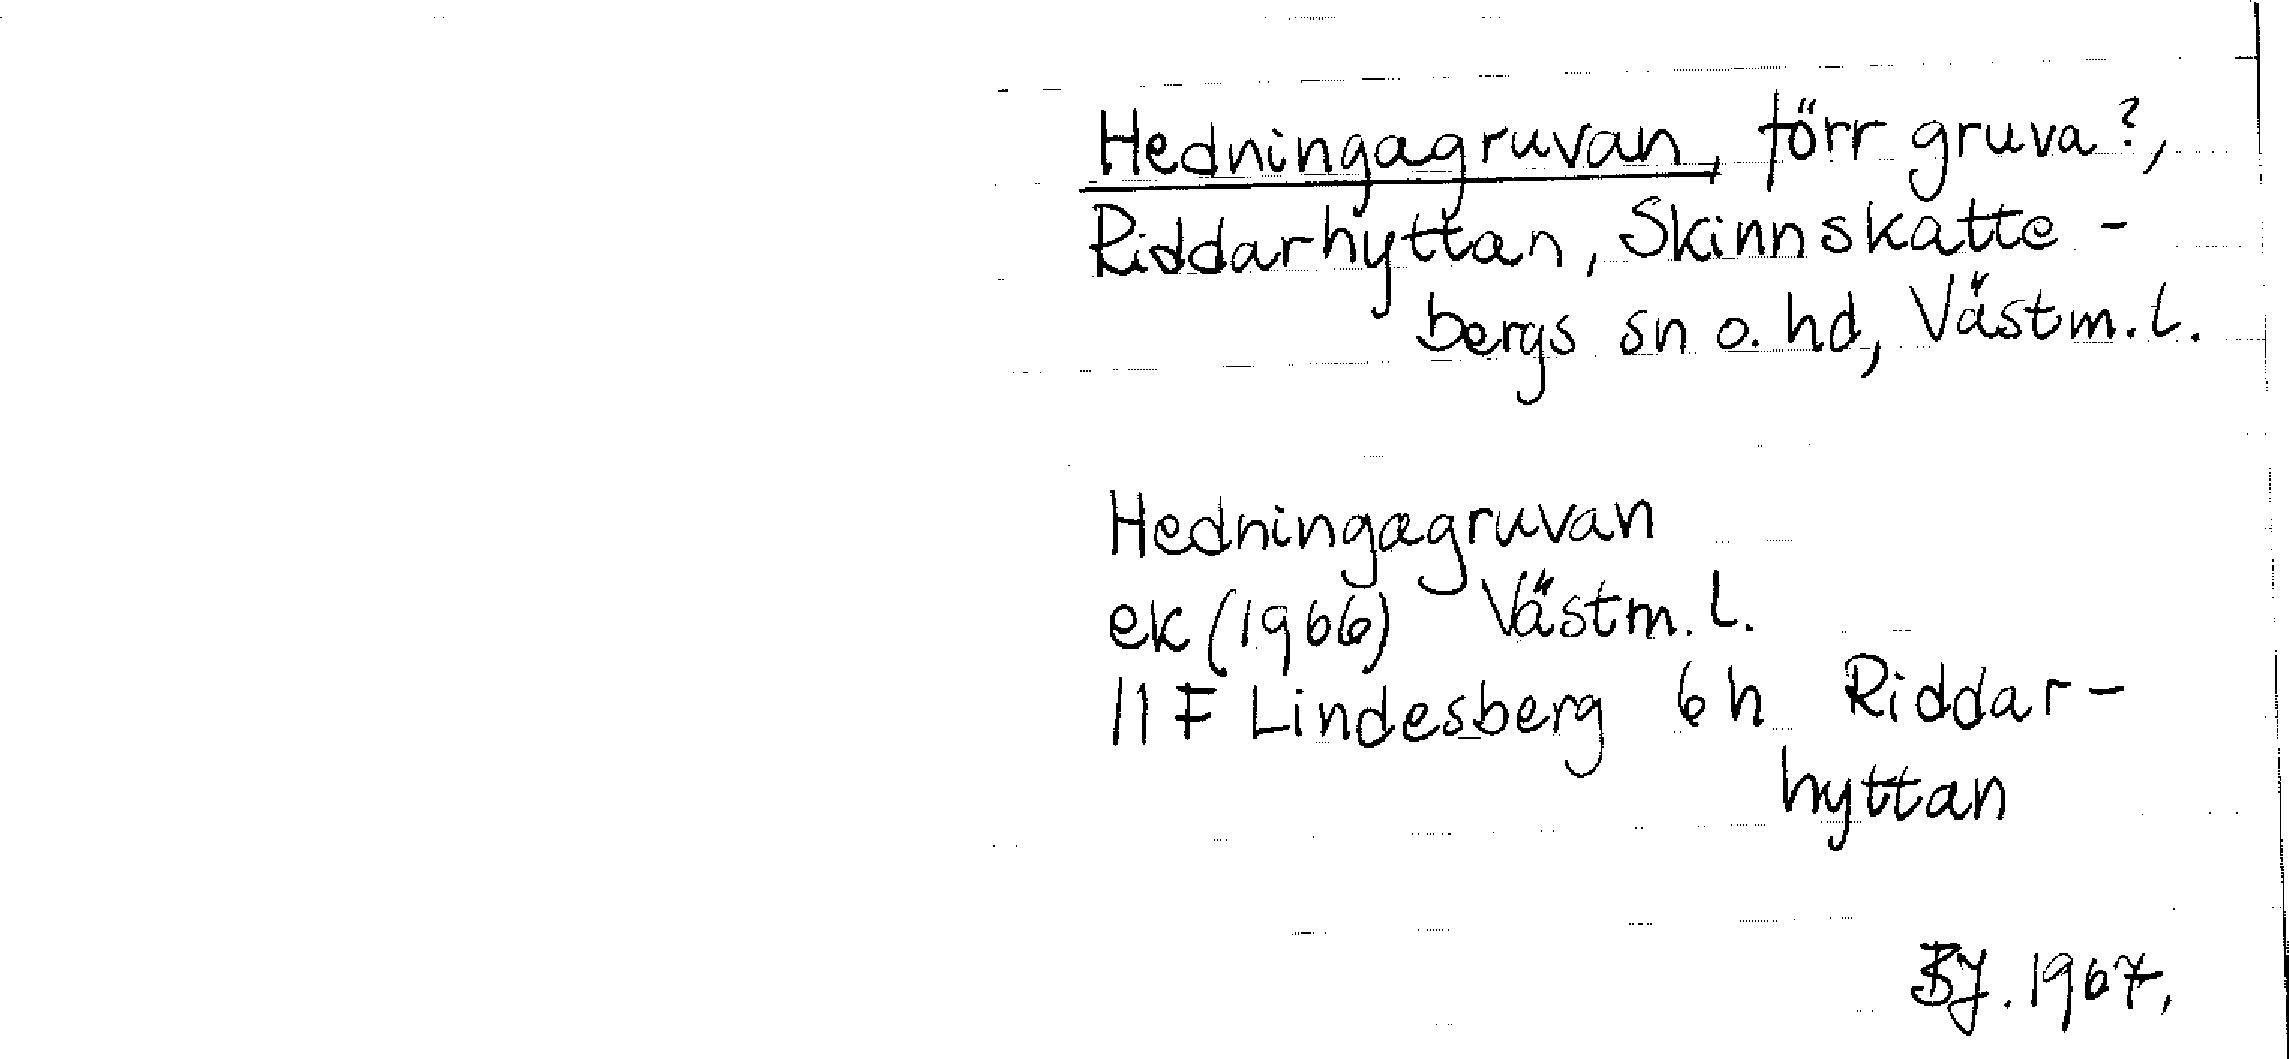 Hedningagruvan, förr gruva?,
Riddarhyttan, Skinnskatte-
bergs sn o. hd, Västm. l.
Hedningagruvan
ek (1966) Västm. l.
11 F Lindesberg 6h Riddar-
hyttan
BJ. 1967.